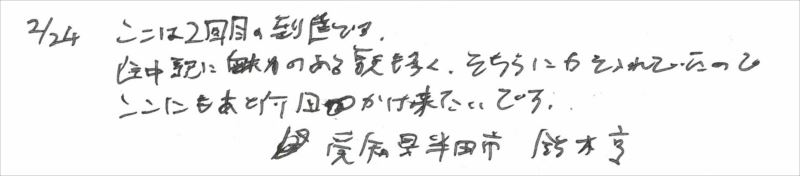 2/24 ここは2回目の到着です。
途中駅に魅力のある駅も多く、そちらにもそれていたので
ここにもあと何回かは来たいです。
愛知県半田市 鈴木亨